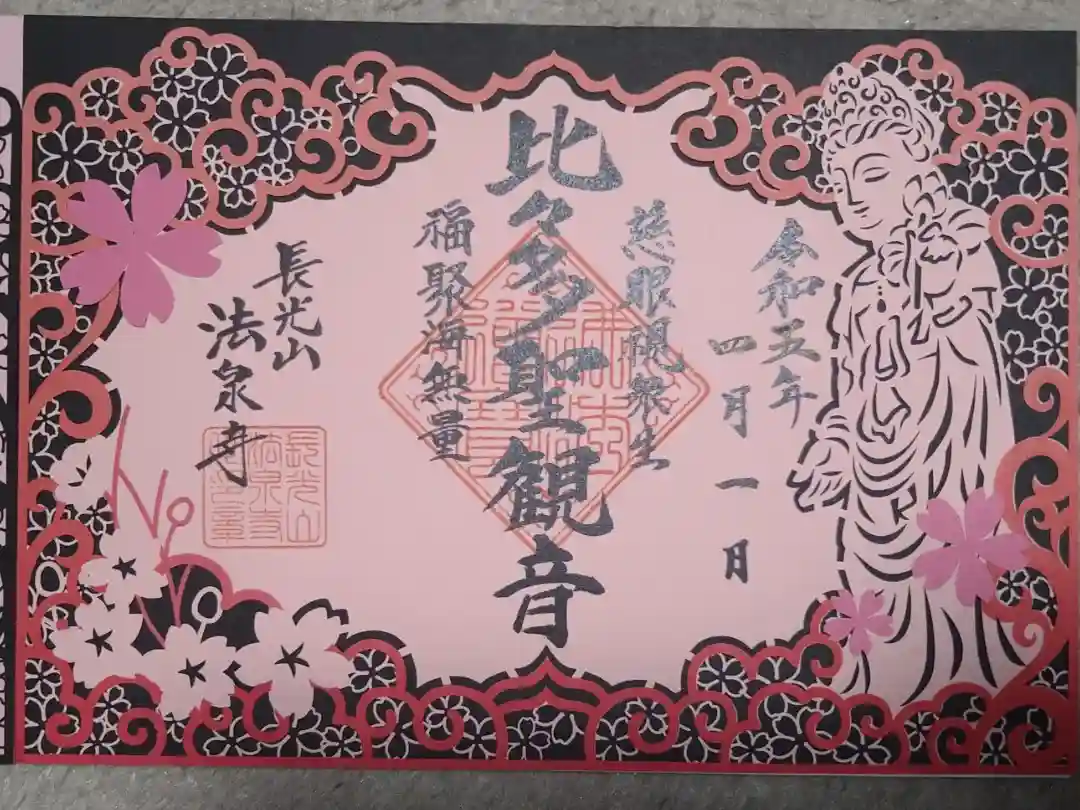 令和五年
四月一日
慈眼視衆生
比々多聖観音
福聚海無量
長光山
法泉寺
長光山
法泉寺